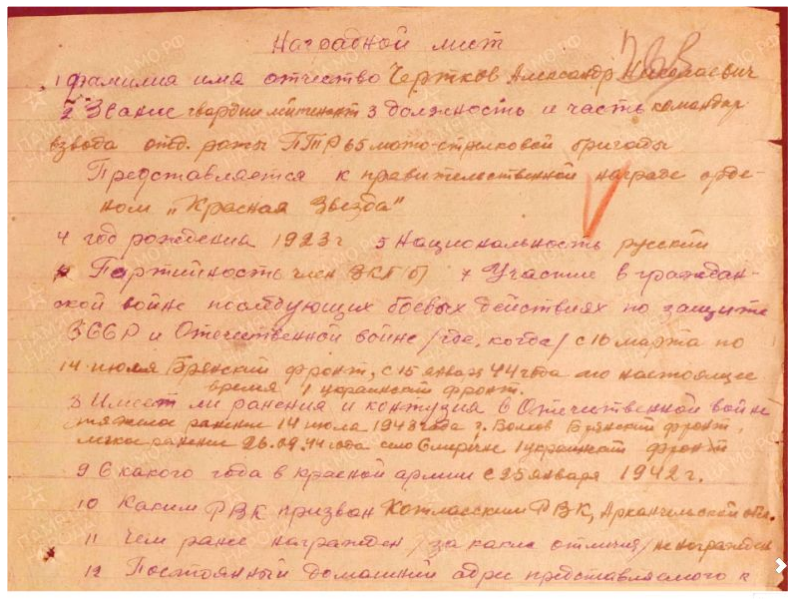 Наградной лист
1 Фамилия имя отчество Чертков Александр Николаевич
2 Звание гвардии лейтенант 3 должность и часть командир
взвода отд. роты ПТР 65 мото-стрелковой бригады
Представляется к правительственной награде орде-
ном „Красная Звезда"
4 год рождения 1923 г 5 Национальность русский
Партийность член ВКП(б) 7 Участие в граждан-
ской войне последующих боевых действиях по защите
СССР и Отечественной войне /где, когда/ с 10 марта по
14 июля Брянский фронт, с 15 января 44 года по настоящее
время 1 украинский фронт.
8 Имеет ли ранения и контузия в Отечественной войне
тяжело ранение 14 июля 1943 года г. Волхов Брянский фронт,
легко ранение 26.02.44 года село 1 украинский фронт
9 С какого года в красной армии с 25 января 1942 г.
10 Каким РВК призван Котласским РВК, Архангельской обл.
11 Чем ранее награжден /за какие отличия/ не награжден
12 Постоянный домашний адрес представляемого к